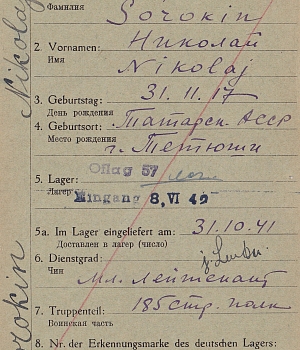 Фамилия
Sorokin
2. Vornamen: Николай
Имя Nikolaj
3. Geburtstag: 31.11.17
День рождения
4. Geburtsort: Татарск. АССР
Место рождения г. Тетюши
5. Lager: Oflag 57
Лагерь
Eingang 8. VI 42
5a. Im Lager eingeliefert am: 31.10.41
Доставлен в лагерь (число)
6. Dienstgrad:
Чин Мл. лейтенант
7. Truppenteil: 185 стр. полк
Воинская часть
8. Nr. der Erkennungsmarke des deutschen Lagers:
Nikolaj
Sorokin